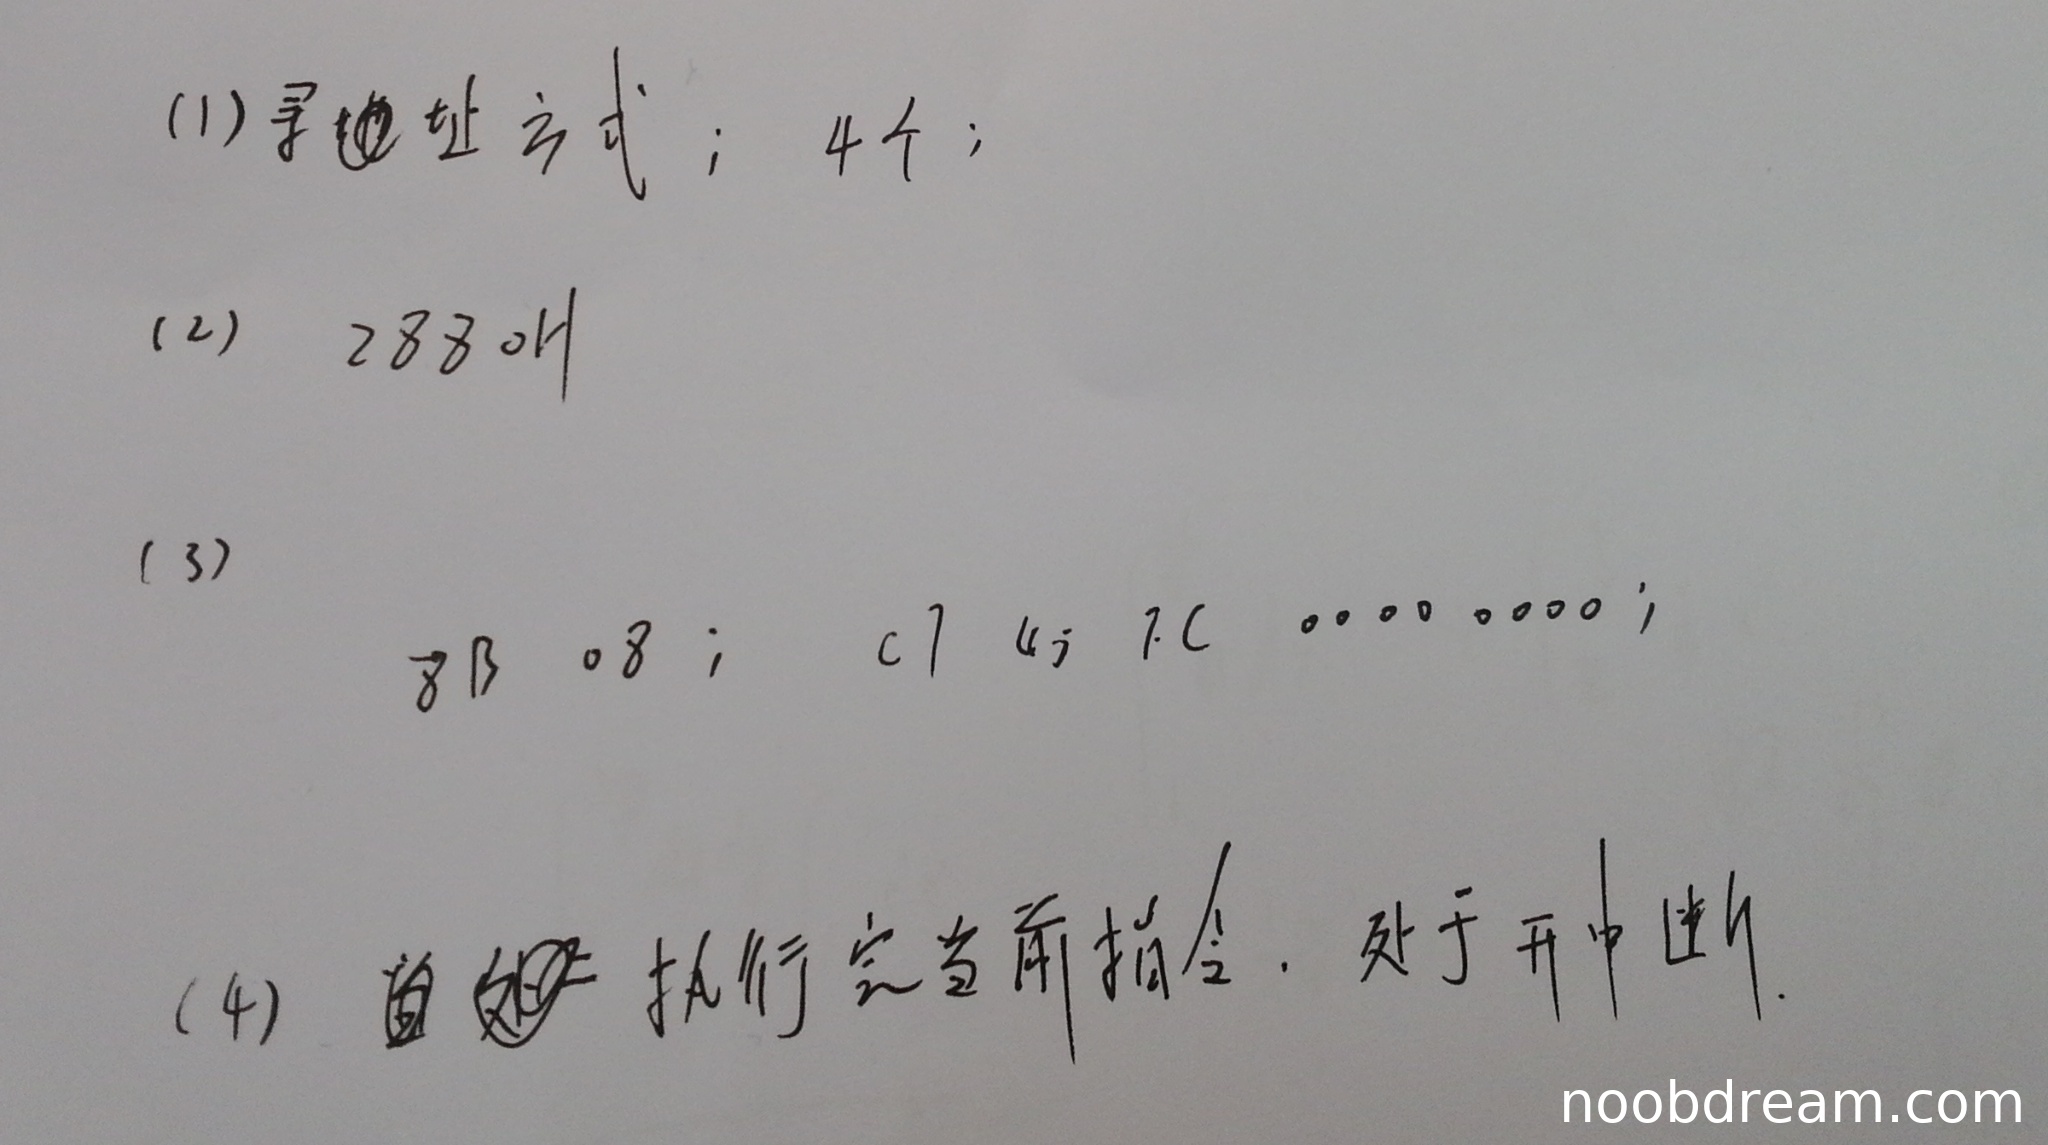 (1) 寻址方式; 4个;
(2) 2880H
(3)
8B 08; C7 45 FC 0000 0000;
(4) 执行完当前指令. 处于开中断.
noobdream.com